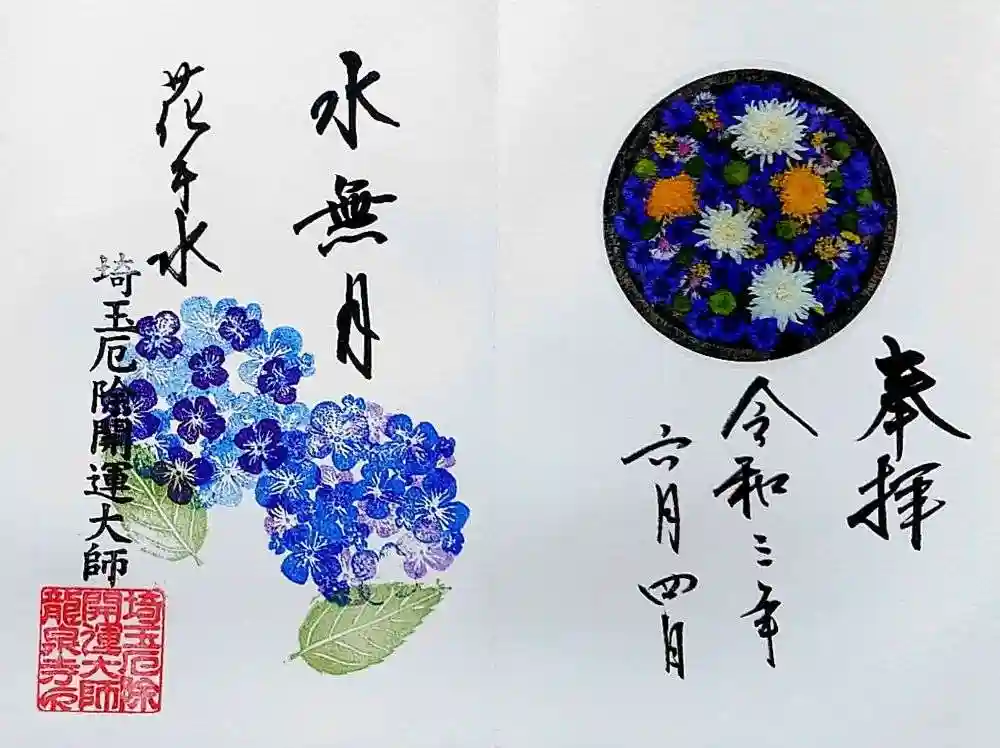 奉拝
令和三年
六月四日
水無月
花手水
埼玉厄除開運大師
埼玉厄除
開運大師
龍泉寺印